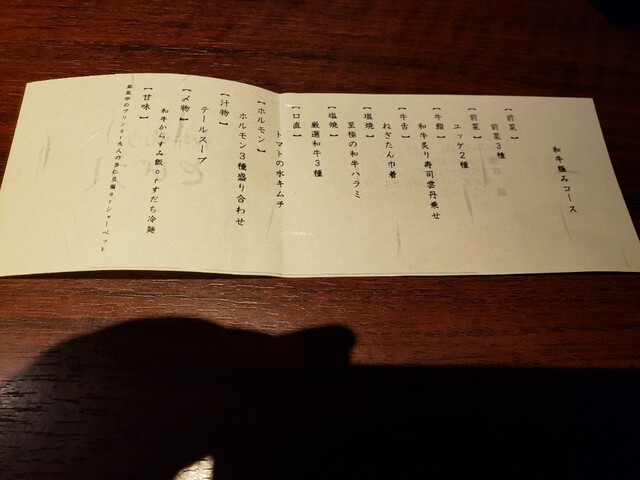 和牛極みコース
【前菜】
前菜3種
【前菜】
ユッケ2種
【牛鮨】
和牛炙り寿司雲丹乗せ
【牛舌】
ねぎたん巾着
【塩焼】
至極の和牛ハラミ
【塩焼】
厳選和牛3種
【口直】
トマトの水キムチ
【ホルモン】
ホルモン3種盛り合わせ
【汁物】
テールスープ
【〆物】
和牛からすみ飯orすだち冷麺
【甘味】
のプリンor大人の杏仁豆腐orシャーベット